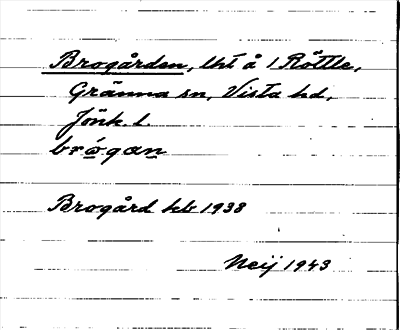 Brogården, lht å 1 Röttle,
Gränna sn, Vista hd,
Jönk. l.
brógan
Brogård kb 1938
Neij 1943